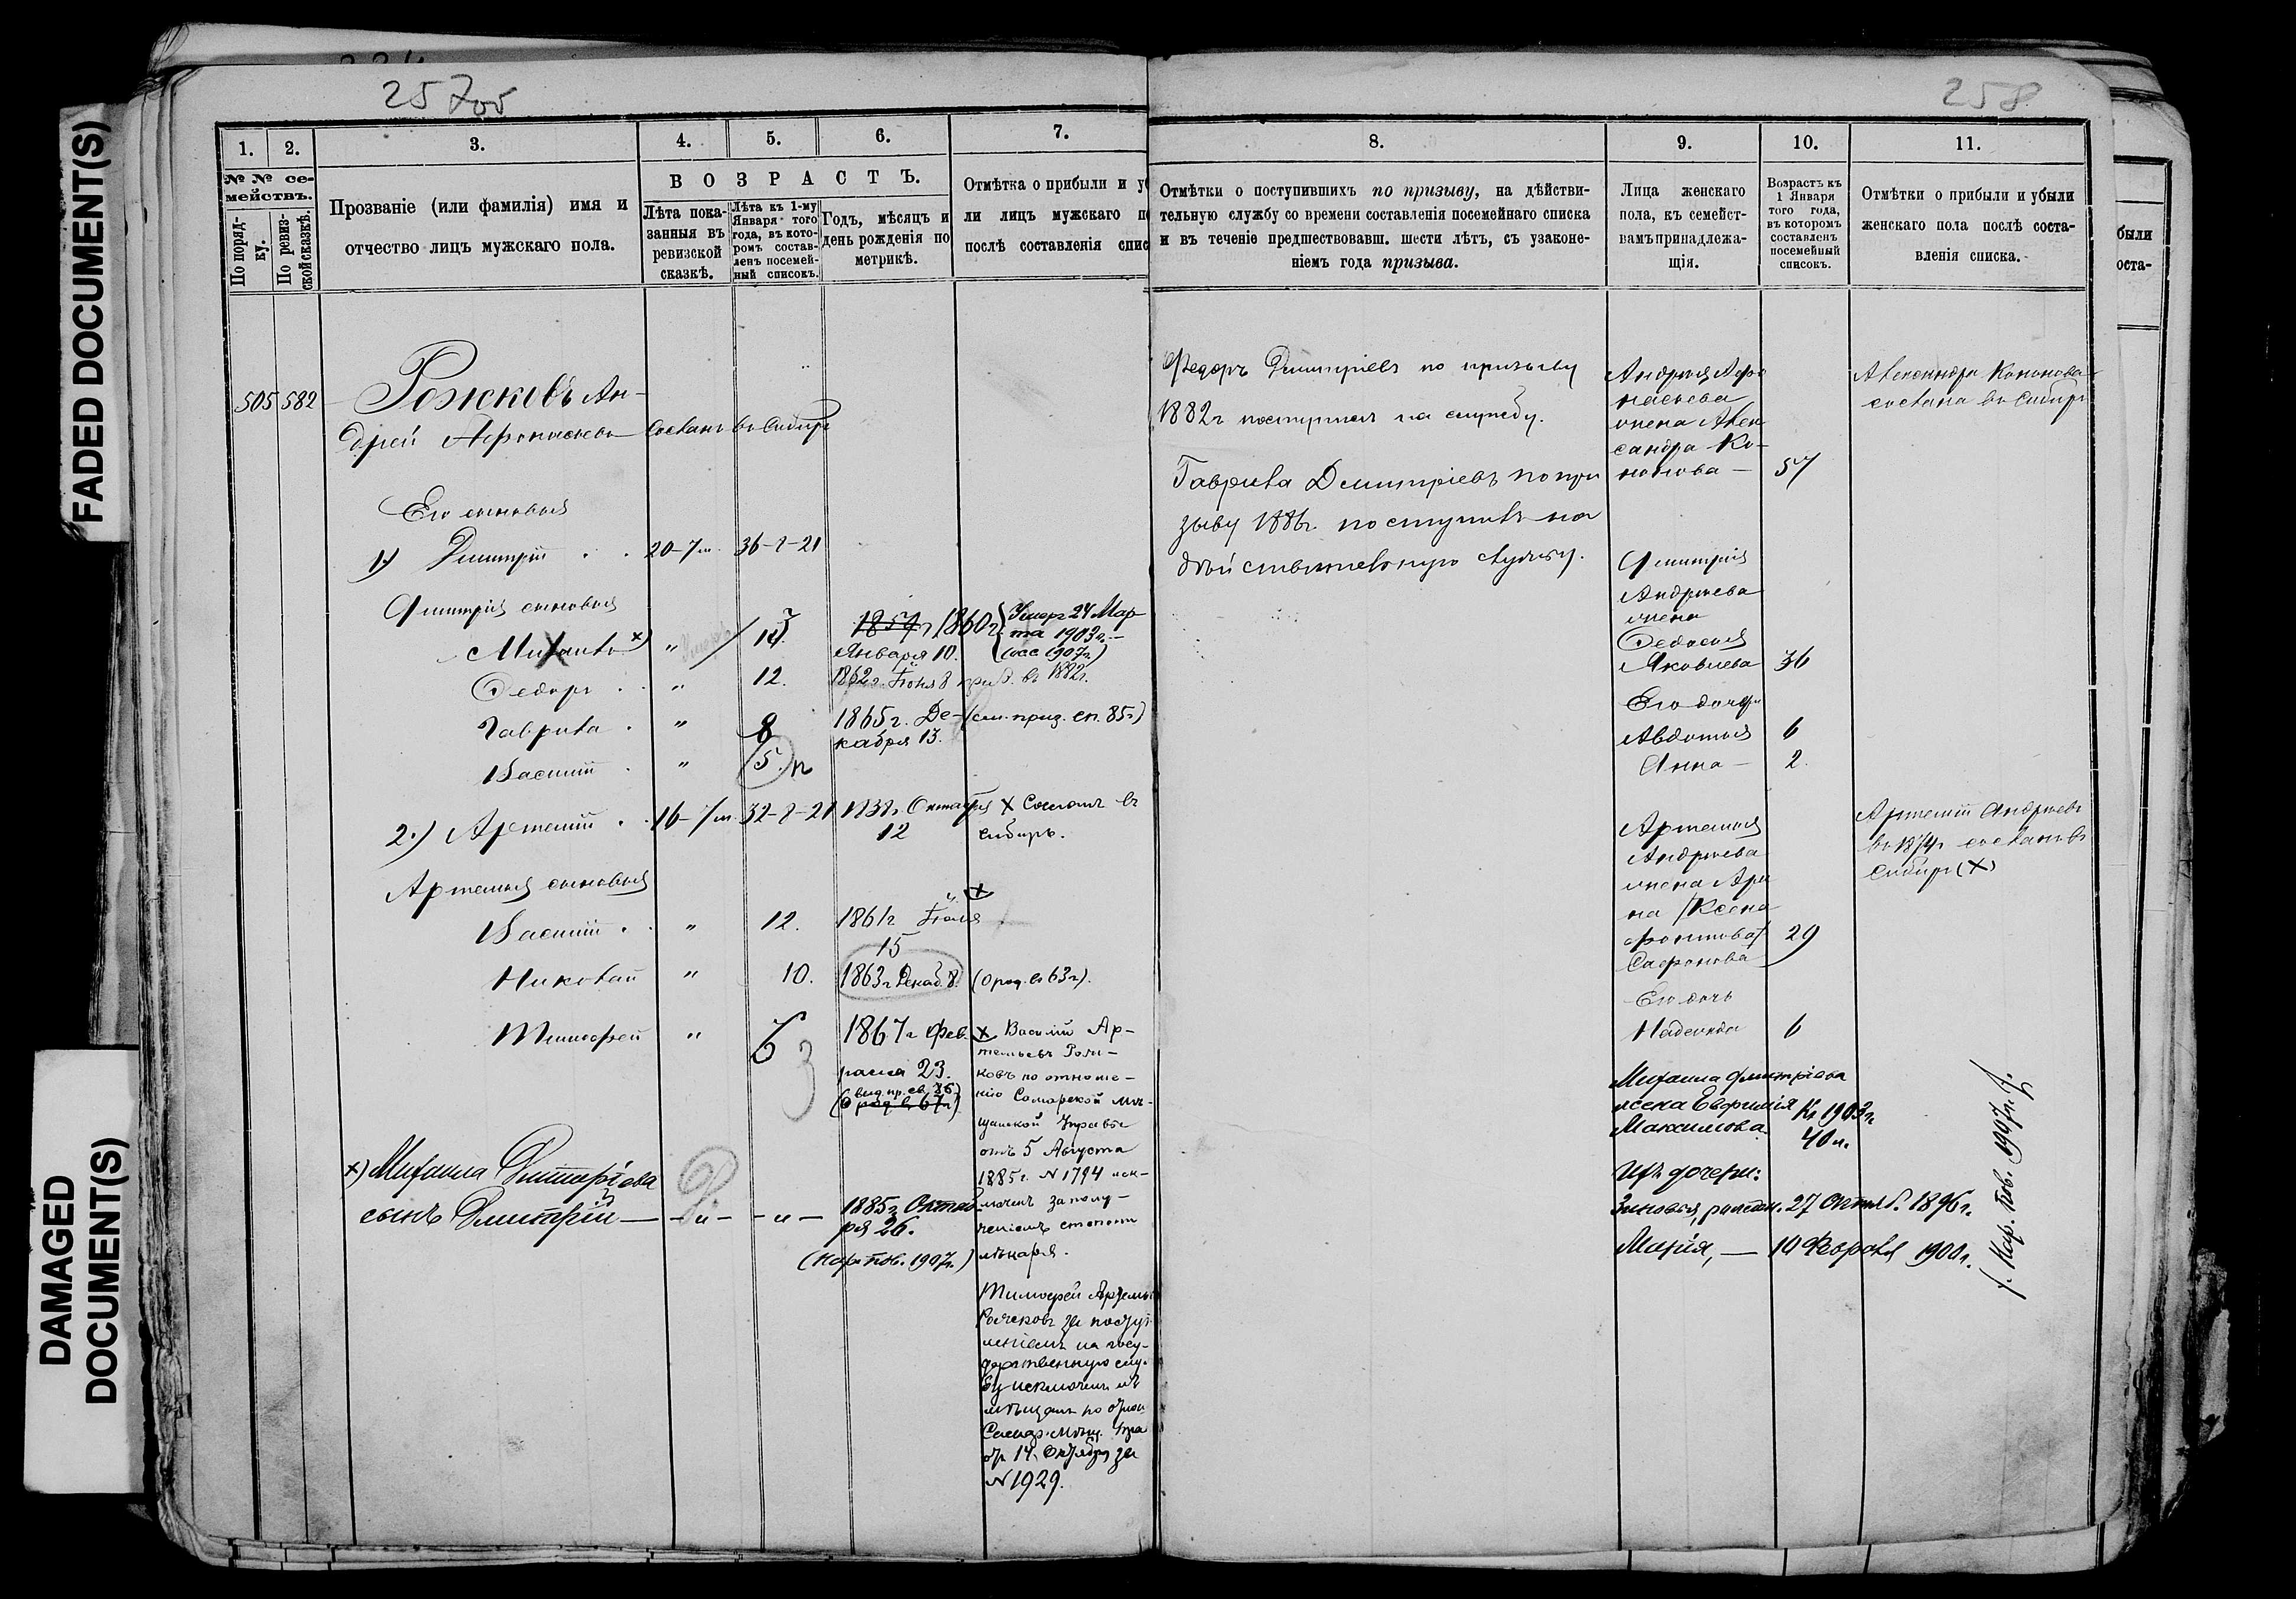 FADED DOCUMENT(S)
DAMAGED
DOCUMENT(S)
257об
258
1.
2.
3.
4.
5.
6.
7.
№ № се-
мействъ.
По поряд-
ку.
По ревиз-
ской сказкѣ.
Прозваніе (или фамилія) имя и
отчество лицъ мужскаго пола.
ВОЗРАСТЪ.
Лѣта пока-
занныя въ
ревизской
сказкѣ.
Лѣта къ 1-му
Января того
года, въ кото-
ромъ состав-
ленъ посемей-
ный списокъ.
Годъ, мѣсяцъ и
день рожденія по
метрикѣ.
Отмѣтка о прибыли и у
ли лицъ мужскаго по
послѣ составленія спис
505 582
Рожковъ Ан-
дрей Афонасьевъ Сосланъ въ Сибирь
Его сыновья
1) Дмитрій 20-7м. 36-2-21
Дмитрія сыновья
Михаилъ х) " 14 1859г 1860г. Умеръ 24 Мар-
Января 10. та 1903г.
1907г.)
Федоръ " 12. 1862г. Іюня 8 въ 1882г.
Гаврила " 8 1865г. Де- (см. приз. сп. 85г)
кабря 13.
Василій " 5.
2.) Артемій 16-7м. 32-2-21 1838г Октября х Сосланъ въ
12 Сибирь.
Артемья сыновья
Василій " 12. 1861г Іюля х
15
Николай " 10. 1863г Декаб. 8. (О род. въ 63г).
Тимофей " 6 3 1867г Фев-
раля 23.
(О род. въ 67г)
х Василій Ар-
темьевъ Рож-
ковъ по отноше-
нію Самарской мѣ-
щанской Управы
отъ 5 Августа
1885г. N 1794 иск-
люченъ за полу-
ченіемъ степени
лѣкаря.
х) Михаила Дмитріева
сынъ Дмитрій — - " - - " - 1885г. Октяб-
ря 26.
(Кар. пов. 1907г.)
Тимофей Артемь
Рожковъ за поступ-
леніемъ на госу-
дарственную служ-
бу исключенъ изъ
мѣщанъ по отнош
Самар. Мѣщ. Упра
отъ 14 Октября за
N 1929.
8.
9.
10.
11.
Отмѣтки о поступившихъ по призыву, на дѣйстви-
тельную службу со времени составленія посемейнаго списка
и въ теченіе предшествовавш. шести лѣтъ, съ узаконе-
ніемъ года призыва.
Лица женскаго
пола, къ семейст-
вамъ принадлежа-
щія.
Возрастъ къ
1 Января
того года,
въ которомъ
составленъ
посемейный
списокъ.
Отмѣтки о прибыли и убыли
женскаго пола послѣ соста-
вленія списка.
были
оста-
Федоръ Дмитріевъ по призыву
1882г поступилъ на службу.
Гаврила Дмитріевъ по при
зыву 1886г. поступилъ на
дѣйствительную службу.
Андрея Афо
насьева
жена Алек
сандра Ко-
нонова — 57
Александра Кононова
сослана въ Сибирь
Дмитрія
Андреева
жена
Федосья
Яковлева 36
Его дочери
Авдотья 6
Анна — 2.
Артемья
Андреева
жена Ари
на /Ксено
фонтова/ 29
Сафонова
Его дочь
Надежда 6
Артемій Андреевъ
въ 1874г сосланъ въ
Сибирь (х)
Михаила Дмитріева
жена Евфимія Къ 1903г.
Максимова. 40л.
Ихъ дочери:
Зиновья, 27 Октяб. 1896г.
Марія, — 10 Февраля 1900г.
Кар. пов. 1907г.